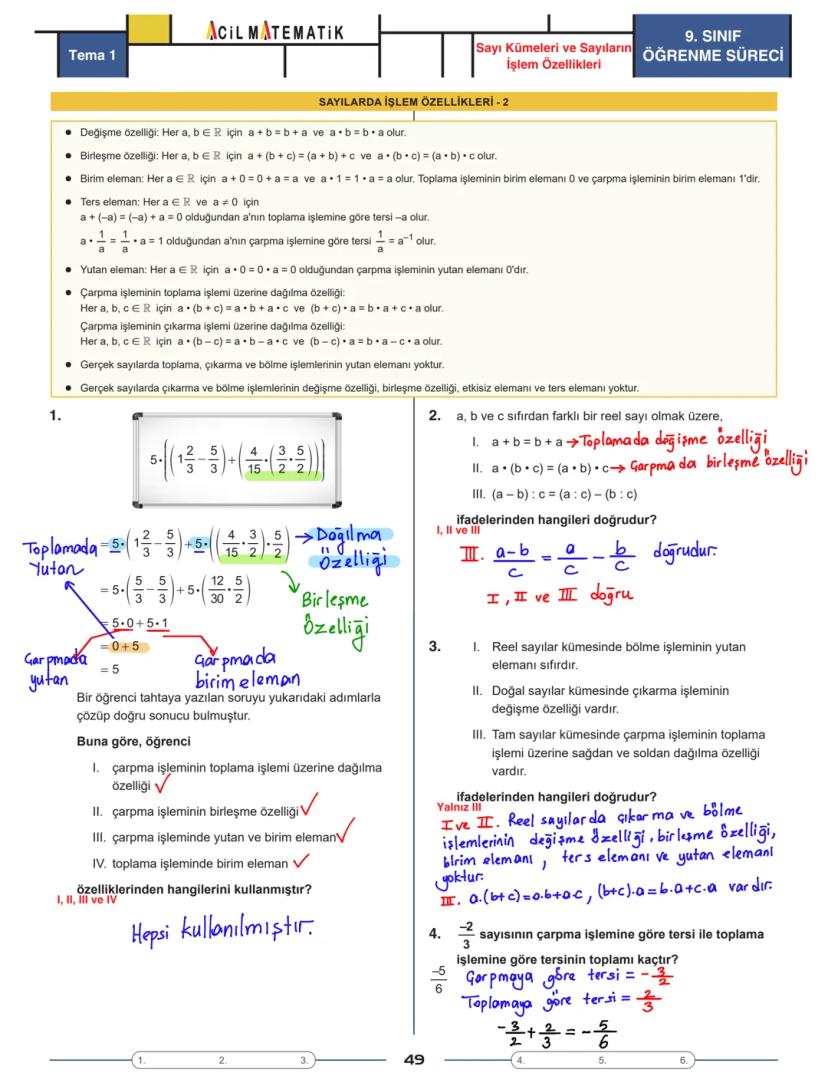 ACİL MATEMATİK
Tema 1
Sayı Kümeleri ve Sayıların
İşlem Özellikleri
9. SINIF
ÖĞRENME SÜRECİ
SAYILARDA İŞLEM ÖZELLİKLERİ - 2
• Değişme özelliği: Her a, b ∈ ℝ için a + b = b + a ve a • b = b • a olur.
• Birleşme özelliği: Her a, b ∈ ℝ için a + (b + c) = (a + b) + c ve a • (b • c) = (a • b) • c olur.
• Birim eleman: Her a ∈ ℝ için a + 0 = 0 + a = a ve a • 1 = 1 • a = a olur. Toplama işleminin birim elemanı 0 ve çarpma işleminin birim elemanı 1'dir.
• Ters eleman: Her a ∈ ℝ ve a ≠ 0 için
a + (–a) = (–a) + a = 0 olduğundan a'nın toplama işlemine göre tersi –a olur.
a • 1/a = 1/a • a = 1 olduğundan a'nın çarpma işlemine göre tersi 1/a = a⁻¹ olur.
• Yutan eleman: Her a ∈ ℝ için a • 0 = 0 • a = 0 olduğundan çarpma işleminin yutan elemanı 0'dır.
• Çarpma işleminin toplama işlemi üzerine dağılma özelliği:
Her a, b, c ∈ ℝ için a • (b + c) = a • b + a • c ve (b + c) • a = b • a + c • a olur.
Çarpma işleminin çıkarma işlemi üzerine dağılma özelliği:
Her a, b, c ∈ ℝ için a • (b – c) = a • b – a • c ve (b – c) • a = b • a – c • a olur.
• Gerçek sayılarda toplama, çıkarma ve bölme işlemlerinin yutan elemanı yoktur.
• Gerçek sayılarda çıkarma ve bölme işlemlerinin değişme özelliği, birleşme özelliği, etkisiz elemanı ve ters elemanı yoktur.
1.
5•((1 2/3 – 5/3)+(4/15•(3/2•5/2)))
= 5•(1 2/3 – 5/3)+5•((4/15•3/2)•5/2) → Dağılma
Özelliği
Toplamada
Yutan
= 5•(5/3 – 5/3)+5•(12/30•5/2)
Birleşme
Özelliği
= 5•0+5•1
= 0+5
= 5
Çarpmada
yutan
Çarpmada
birim eleman
Bir öğrenci tahtaya yazılan soruyu yukarıdaki adımlarla
çözüp doğru sonucu bulmuştur.
Buna göre, öğrenci
I. çarpma işleminin toplama işlemi üzerine dağılma
özelliği ✓
II. çarpma işleminin birleşme özelliği ✓
III. çarpma işleminde yutan ve birim eleman ✓
IV. toplama işleminde birim eleman ✓
özelliklerinden hangilerini kullanmıştır?
I, II, III ve IV
Hepsi kullanılmıştır.
2. a, b ve c sıfırdan farklı bir reel sayı olmak üzere,
I. a + b = b + a → Toplamada değişme özelliği
II. a • (b • c) = (a • b) • c → Çarpmada birleşme özelliği
III. (a – b) : c = (a : c) – (b : c)
ifadelerinden hangileri doğrudur?
I, II ve III
III. a-b/c = a/c - b/c doğrudur.
I, II ve III doğru
3. I. Reel sayılar kümesinde bölme işleminin yutan
elemanı sıfırdır.
II. Doğal sayılar kümesinde çıkarma işleminin
değişme özelliği vardır.
III. Tam sayılar kümesinde çarpma işleminin toplama
işlemi üzerine sağdan ve soldan dağılma özelliği
vardır.
ifadelerinden hangileri doğrudur?
Yalnız III
I ve II. Reel sayılarda çıkarma ve bölme
işlemlerinin değişme özelliği, birleşme özelliği,
birim elemanı, ters elemanı ve yutan elemanı
yoktur.
III. a.(b+c)=a.b+a.c, (b+c).a=b.a+c.a vardır.
4. –2/3 sayısının çarpma işlemine göre tersi ile toplama
işlemine göre tersinin toplamı kaçtır?
–5/6
Çarpmaya göre tersi = -3/2
Toplamaya göre tersi = 2/3
-3/2 + 2/3 = -5/6
1. 2. 3.
49
4. 5. 6.